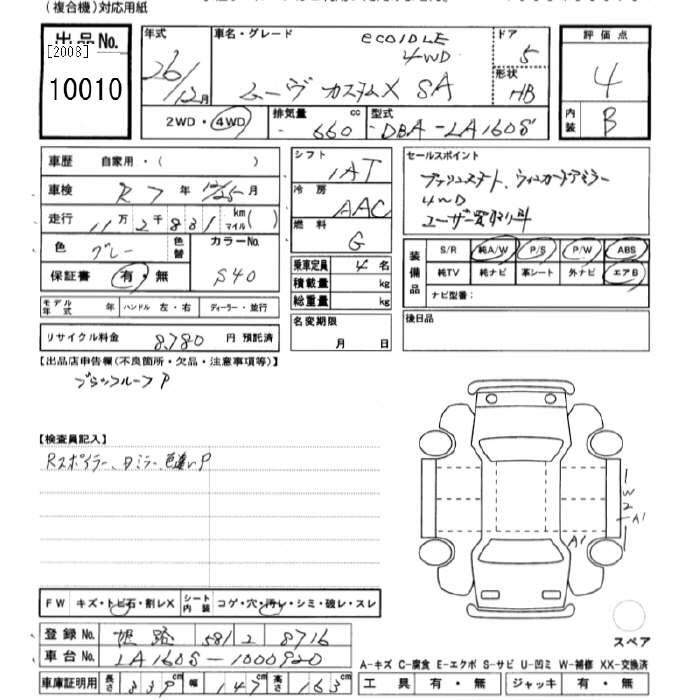 (複合機)対応用紙
出品No.
[2008]
10010
年式
26/12月
車名・グレード
ecoIDLE
4WD
ムーヴ カスタムX SA
ドア
5
形状
HB
評価点
4
内装
B
2WD・4WD
排気量
660 cc
型式
DBA-LA160S
車歴 自家用・( )
車検 R7年12/25月
走行 11万2千831 km マイル( )
色 グレー 色替
カラーNo.
S40
保証書 有・無
モデル年式 年 ハンドル 左・右 ディーラー・並行
リサイクル料金 8,780 円 預託済
シフト
IAT
冷房
AAC
燃料
G
乗車定員 4名
積載量 kg
総重量 kg
名変期限
月 日
セールスポイント
プッシュスタート、ウィンカードアミラー
4WD
ユーザー買取り車
装備品
S/R 純A/W P/S P/W ABS
純TV 純ナビ 革シート 外ナビ エアB
ナビ型番:
後日品
【出品店申告欄(不良箇所・欠品・注意事項等)】
ブラックルーフP
【検査員記入】
Rスポイラー、ドミラー色違いP
1
W
2
A1
A1
FW キズ・トビ石・割レX シート内装 コゲ・穴・汚レ・シミ・破レ・スレ
登録No. 姫路 581 2 8716
車台No. LA160S-1000920
車庫証明用 長さ 339cm 幅 147cm 高さ 163cm
スペア
A-キズ C-腐食 E-エクボ S-サビ U-凹ミ W-補修 XX-交換済
工具 有・無 ジャッキ 有・無